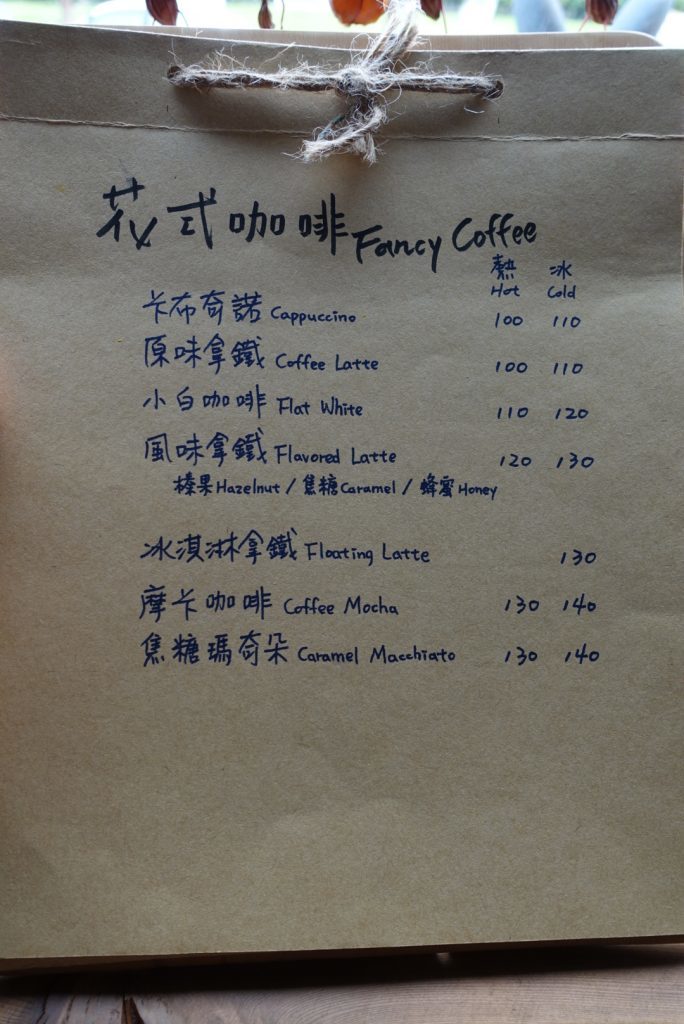 花式咖啡 Fancy Coffee
熱 冰
Hot Cold
卡布奇諾 Cappuccino 100 110
原味拿鐵 Coffee Latte 100 110
小白咖啡 Flat White 110 120
風味拿鐵 Flavored Latte 120 130
榛果 Hazelnut / 焦糖 Caramel / 蜂蜜 Honey
冰淇淋拿鐵 Floating Latte 130
摩卡咖啡 Coffee Mocha 130 140
焦糖瑪奇朵 Caramel Macchiato 130 140